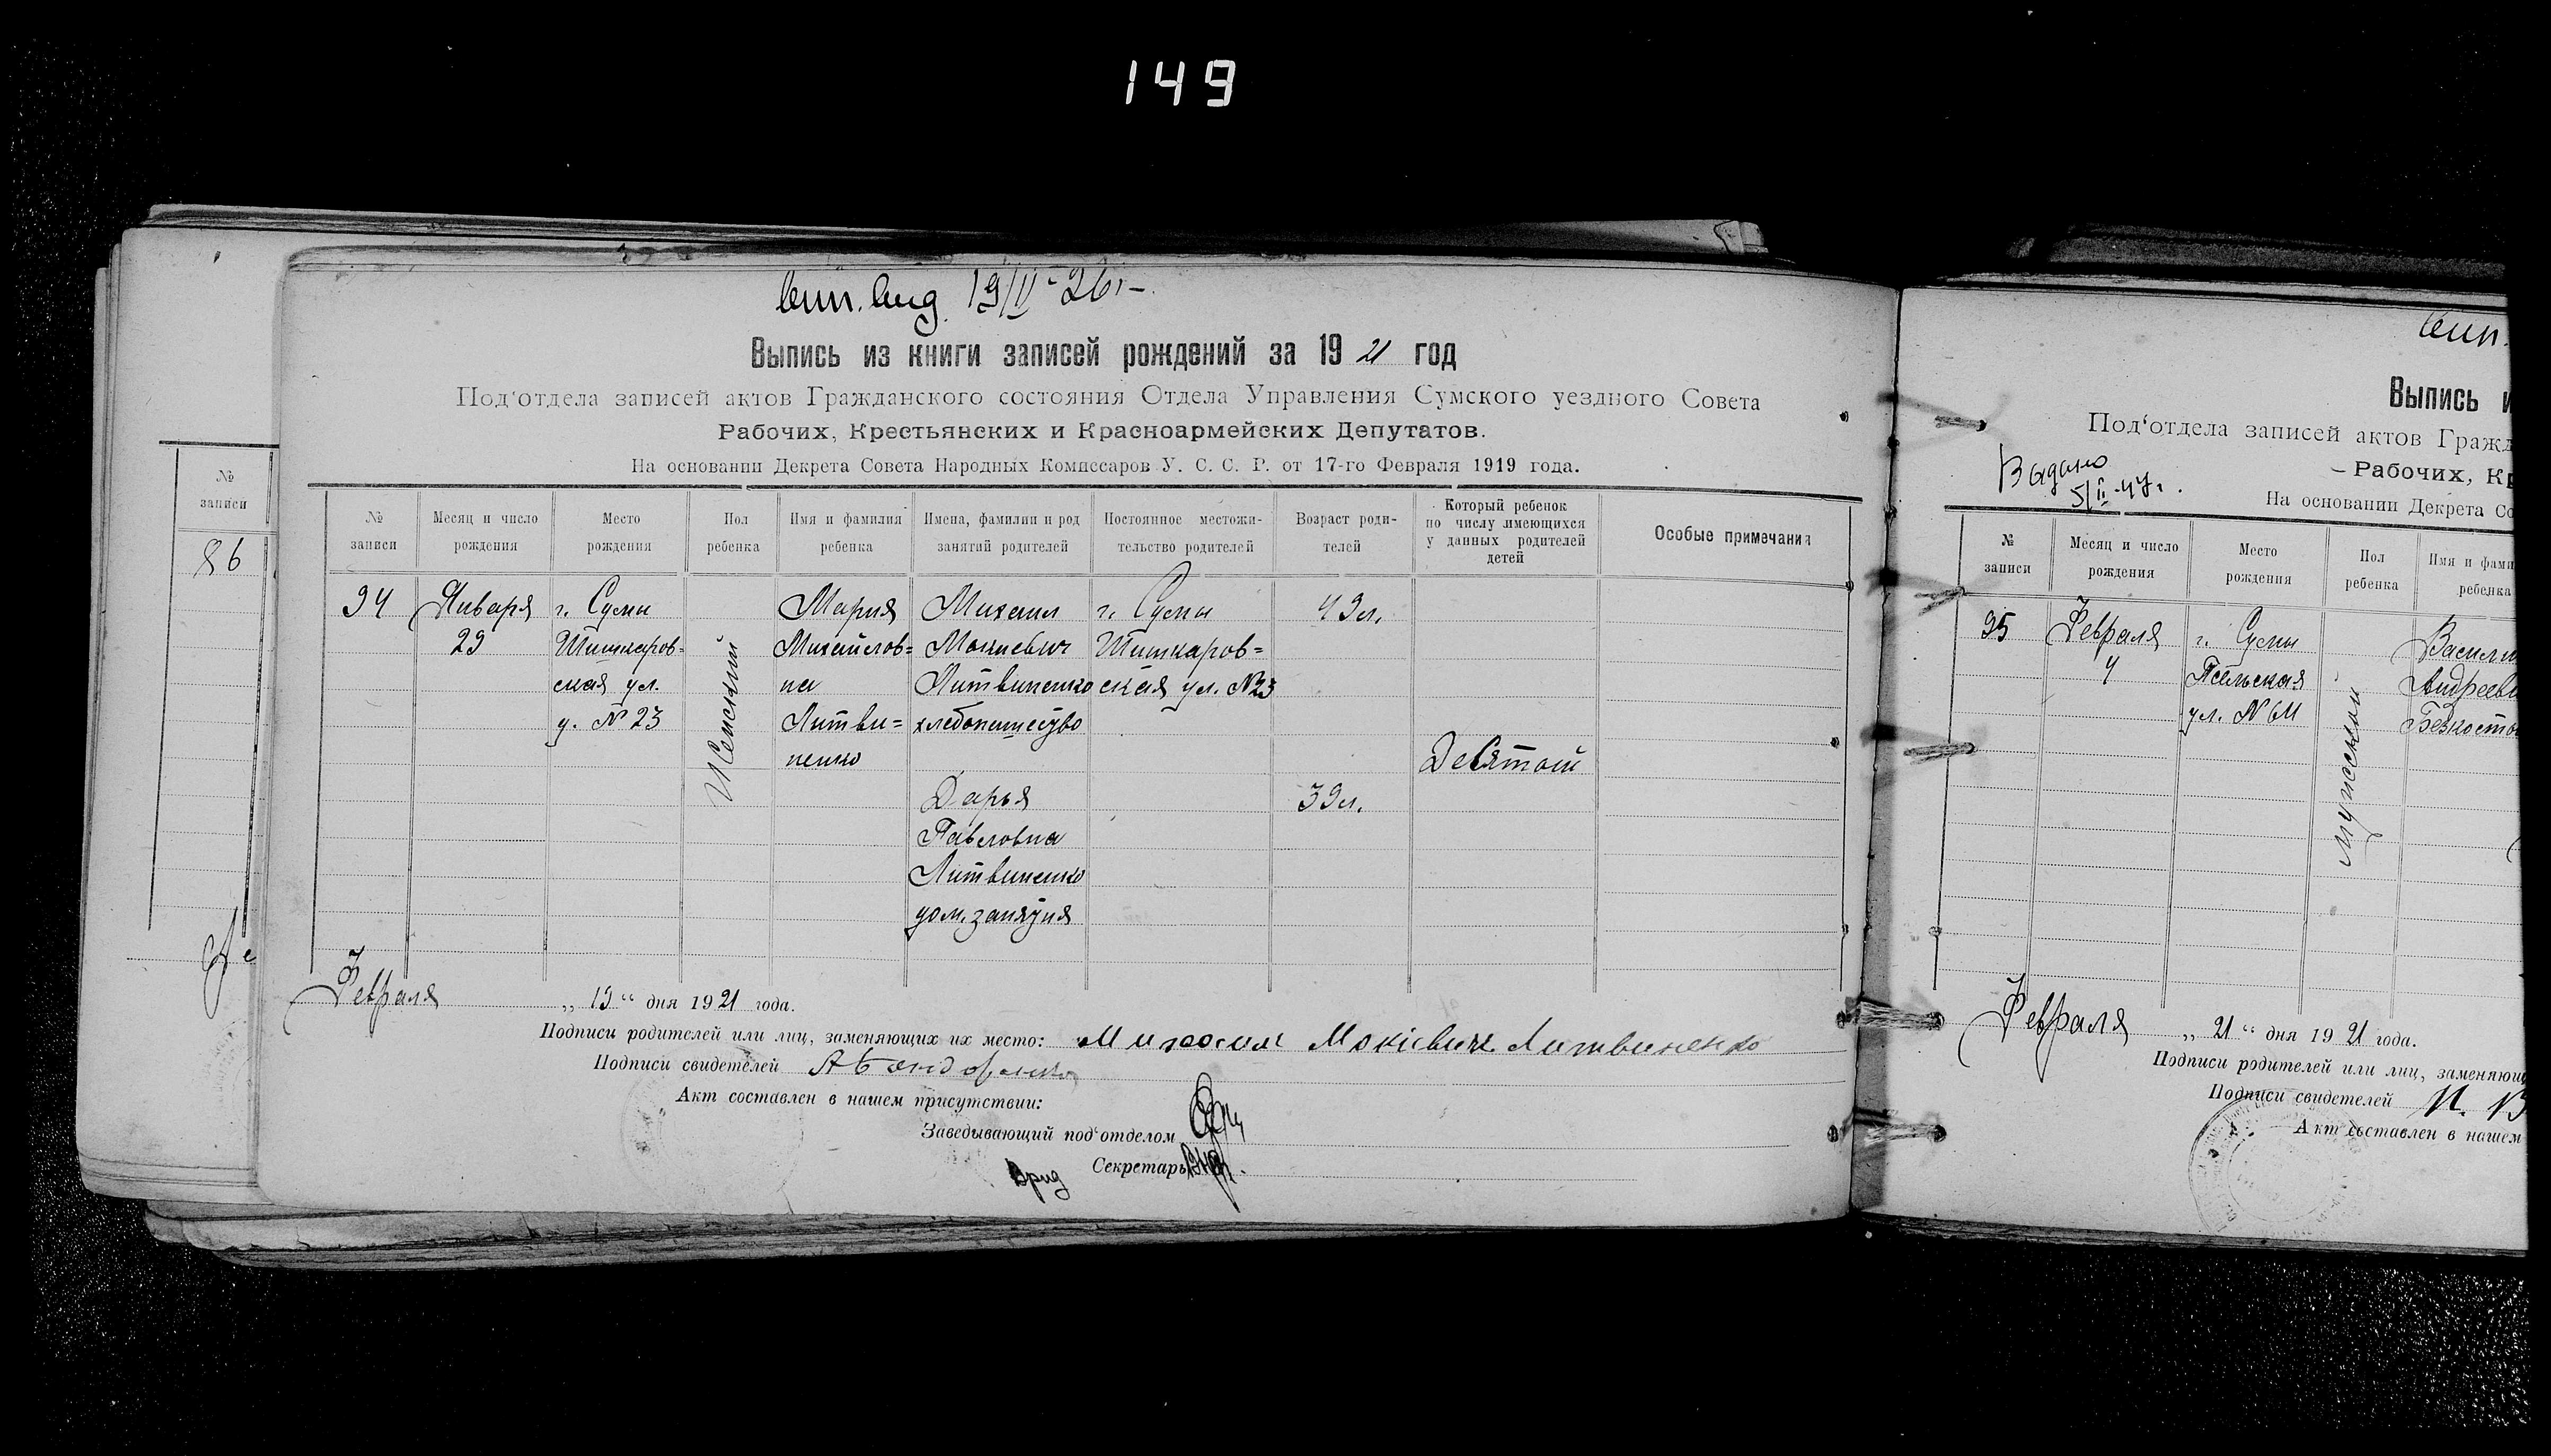 149
вып. выд. 19/II-26 г.
Выпись из книги записей рождений за 1921 год
Под‘отдела записей актов Гражданского состояния Отдела Управления Сумского уездного Совета
Рабочих, Крестьянских и Красноармейских Депутатов.
На основании Декрета Совета Народных Комиссаров У. С. С. Р. от 17-го Февраля 1919 года.
№ записи
Месяц и число рождения
Место рождения
Пол ребенка
Имя и фамилия ребенка
Имена, фамилии и род занятий родителей
Постоянное местожи-тельство родителей
Возраст роди-телей
Который ребенок по числу имеющихся у данных родителей детей
Особые примечания
94
Января
29
г. Сумы
Шишкаров=
ская ул.
д. № 23
Женский
Мария
Михайлов=
на
Литви=
ненко
Михаил
Мокиевич
Литвиненко
хлебопашество
Дарья
Павловна
Литвиненко
дом. занятия
г. Сумы
Шишкаров=
ская ул. №23
49 л.
39 л.
Девятый
Февраля „19“ дня 1921 года.
Подписи родителей или лиц, заменяющих их место: Михаил Мокіевич Литвиненко
Подписи свидетелей
Акт составлен в нашем присутствии:
Заведывающий под‘отделом
Врид Секретарь
№
записи
86
вып.
Выпись и
Под‘отдела записей актов Гражд
Рабочих, Кр
Выдано
5/II-47 г.
На основании Декрета Со
№ записи
Месяц и число рождения
Место рождения
Пол ребенка
Имя и фами
ребенка
95
Февраля
4
г. Сумы
Псельская
ул. № 61
Мужской
Васили
Андрееви
Безкосто
Февраля „21“ дня 1921 года.
Подписи родителей или лиц, заменяющ
Подписи свидетелей И.
Акт составлен в нашем